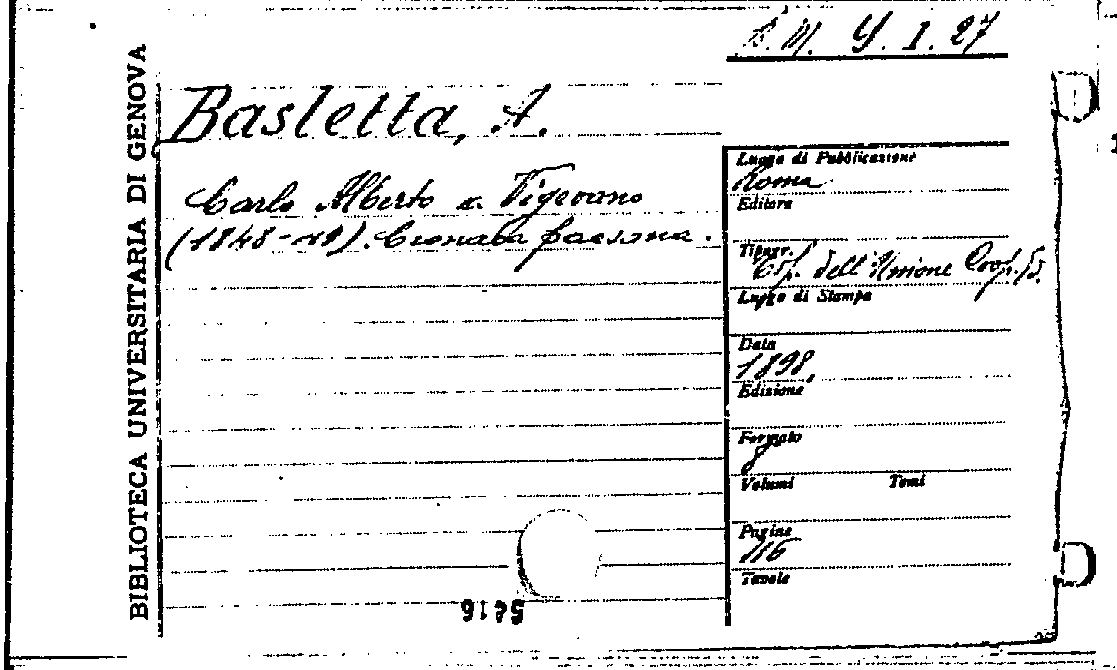 B. M. Y. I. 27
BIBLIOTECA UNIVERSITARIA DI GENOVA
Basletta, A.
Carlo Alberto a Vigevano
(1848-49). Cronaca paesana.
Luogo di Pubblicazione
Roma
Editore
Tipogr.
Tip. dell'Unione Coop. Ed.
Luogo di Stampa
Data
1898,
Edizione
Formato
8
Volumi Tomi
Pagine
116
Tavole